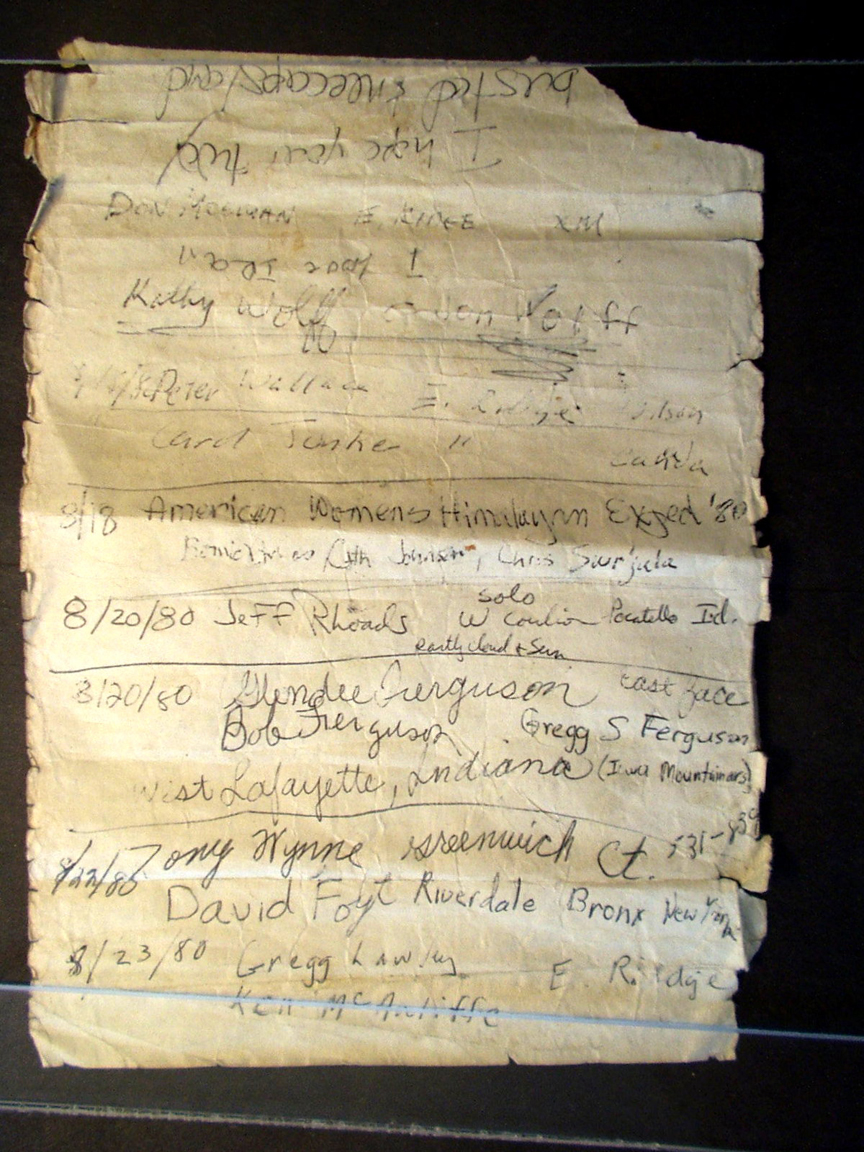 busted kneecaps and
I hope you
DON E. RIDGE
I love
Kathy Wolff Jon Wolff
Peter Wallace E. Ridge
Carol " Canada
8/18 American Womens Himalayan Exped '80
Johnson, Chris
8/20/80 Jeff Rhoads solo W Couloir Pocatello Id.
partly cloud + Sun
8/20/80 Glendee Ferguson East face
Bob Ferguson Gregg S Ferguson
West Lafayette, Indiana (Iowa Mountainears)
8/22/80 Tony Wynne Greenwich Ct.
David Foyt Riverdale Bronx New York
8/23/80 Gregg Lawley E. Ridge
Ken McAuliffe